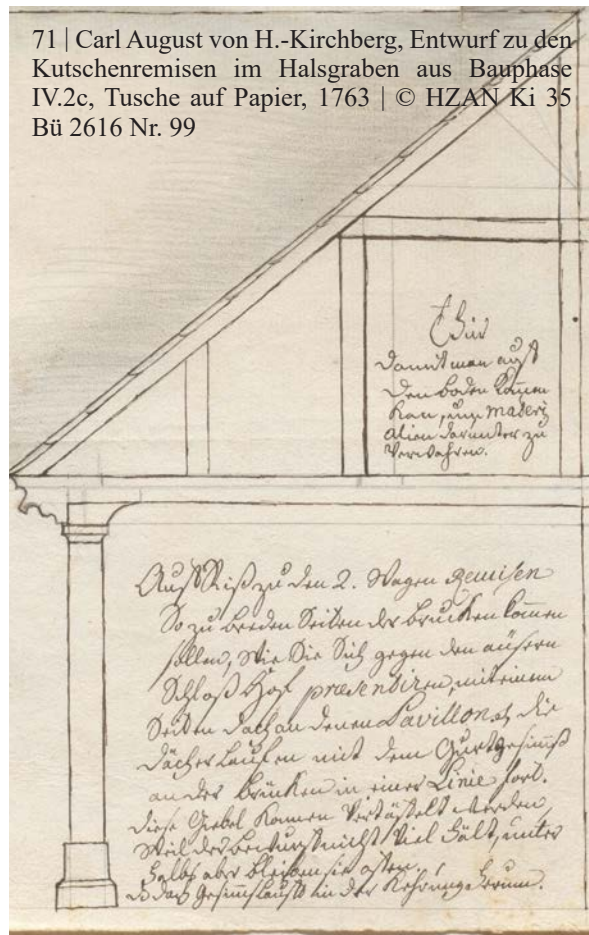 71 | Carl August von H.-Kirchberg, Entwurf zu den
Kutschenremisen im Halsgraben aus Bauphase
IV.2c, Tusche auf Papier, 1763 | © HZAN Ki 35
Bü 2616 Nr. 99
Thür
damit man auf
den boden kom̄en
kan, umb materi
alien darunter zu
verwahren.
Auf Riß zu den 2. Wagen Remisen
So zu beeden Seiten der brucken kom̄en
sollen, wie Sie Sich gegen den äusern
Schloß Hof præsentiren, mit einem
Seiten dach an denen Pavillons, die
dächer laufen mit dem Gurtgesimß
an der brücken in einer Linie fort.
diese Giebel können Vertäffelt werden,
weil der bewurf nicht Viel hält, unter
halb aber bleiben sie offen.
das Gesimß lauft in der Kehrung herum.